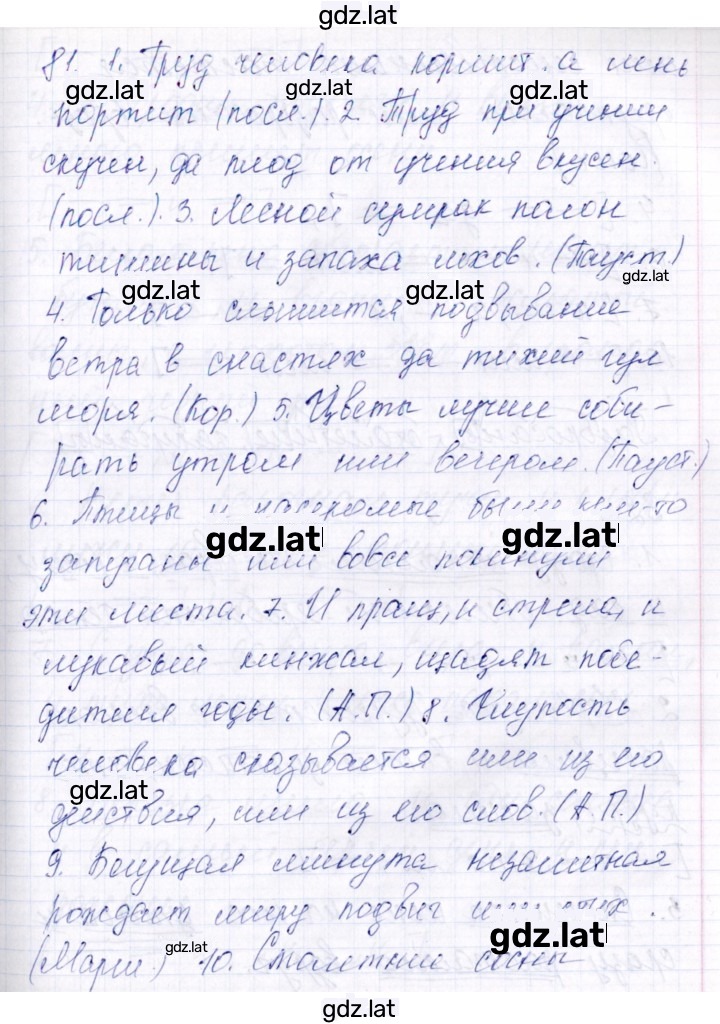 gdz.lat
81. 1. Труд человека кормит. а лень
gdz.lat gdz.lat gdz.lat
портит (посл.). 2. Труд при учении
скучен, да плод от учения вкусен.
(посл.). 3. Лесной сумрак полон
тишины и запаха мхов. (Пауст.)
gdz.lat gdz.lat gdz.lat
4. Только слышится подвывание
ветра в снастях да тихий гул
моря. (Кор.) 5. Цветы лучше соби-
рать утром или вечером. (Пауст.)
6. Птицы и насекомые были кем-то
gdz.lat gdz.lat
запуганы или вовсе покинули
эти места. 7. И пращ, и стрела, и
лукавый кинжал, щадят побе-
дителя годы. (А.П.) 8. Глупость
человека сказывается или из его
gdz.lat
действия, или из его слов. (А.П.)
9. Бегущая минута незаметная
рождает миру подвиг
gdz.lat gdz.lat
(Марш.) 10. Столетние сосны
gdz.lat